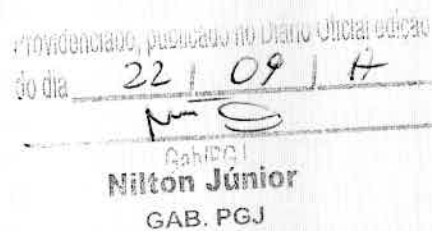 Providenciado, publicado no Diário Oficial edição
do dia 22 / 09 /
Gab/PGJ
Nilton Júnior
GAB. PGJ